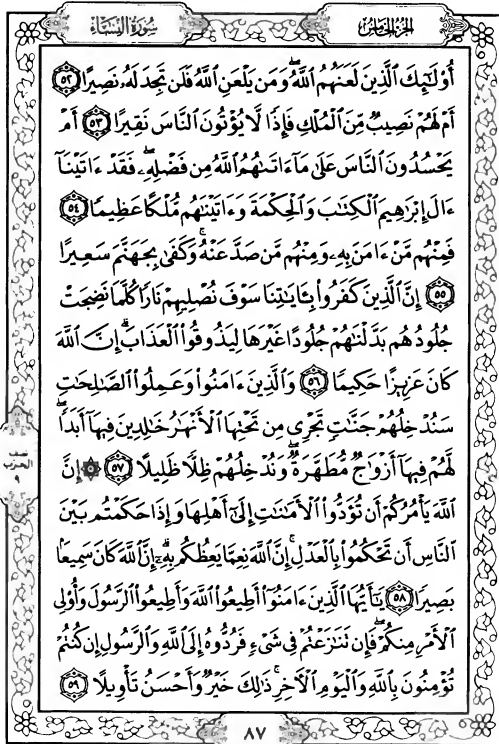 سُورَةُ النِّسَاءِ
الجُزءُ الخَامِسُ
أُوْلَٰٓئِكَ ٱلَّذِينَ لَعَنَهُمُ ٱللَّهُۖ وَمَن يَلْعَنِ ٱللَّهُ فَلَن تَجِدَ لَهُۥ نَصِيرًا ٥٢
أَمْ لَهُمْ نَصِيبٌ مِّنَ ٱلْمُلْكِ فَإِذًا لَّا يُؤْتُونَ ٱلنَّاسَ نَقِيرًا ٥٣ أَمْ
يَحْسُدُونَ ٱلنَّاسَ عَلَىٰ مَآ ءَاتَىٰهُمُ ٱللَّهُ مِن فَضْلِهِۦۖ فَقَدْ ءَاتَيْنَآ
ءَالَ إِبْرَٰهِيمَ ٱلْكِتَٰبَ وَٱلْحِكْمَةَ وَءَاتَيْنَٰهُم مُّلْكًا عَظِيمًا ٥٤
فَمِنْهُم مَّنْ ءَامَنَ بِهِۦ وَمِنْهُم مَّن صَدَّ عَنْهُۚ وَكَفَىٰ بِجَهَنَّمَ سَعِيرًا
٥٥ إِنَّ ٱلَّذِينَ كَفَرُوا۟ بِـَٔايَٰتِنَا سَوْفَ نُصْلِيهِمْ نَارًا كُلَّمَا نَضِجَتْ
جُلُودُهُم بَدَّلْنَٰهُمْ جُلُودًا غَيْرَهَا لِيَذُوقُوا۟ ٱلْعَذَابَۗ إِنَّ ٱللَّهَ
كَانَ عَزِيزًا حَكِيمًا ٥٦ وَٱلَّذِينَ ءَامَنُوا۟ وَعَمِلُوا۟ ٱلصَّٰلِحَٰتِ
سَنُدْخِلُهُمْ جَنَّٰتٍ تَجْرِى مِن تَحْتِهَا ٱلْأَنْهَٰرُ خَٰلِدِينَ فِيهَآ أَبَدًاۖ
لَّهُمْ فِيهَآ أَزْوَٰجٌ مُّطَهَّرَةٌۖ وَنُدْخِلُهُمْ ظِلًّا ظَلِيلًا ٥٧ ۞ إِنَّ
ٱللَّهَ يَأْمُرُكُمْ أَن تُؤَدُّوا۟ ٱلْأَمَٰنَٰتِ إِلَىٰٓ أَهْلِهَا وَإِذَا حَكَمْتُم بَيْنَ
ٱلنَّاسِ أَن تَحْكُمُوا۟ بِٱلْعَدْلِۚ إِنَّ ٱللَّهَ نِعِمَّا يَعِظُكُم بِهِۦٓۗ إِنَّ ٱللَّهَ كَانَ سَمِيعًۢا
بَصِيرًا ٥٨ يَٰٓأَيُّهَا ٱلَّذِينَ ءَامَنُوٓا۟ أَطِيعُوا۟ ٱللَّهَ وَأَطِيعُوا۟ ٱلرَّسُولَ وَأُو۟لِى
ٱلْأَمْرِ مِنكُمْۖ فَإِن تَنَٰزَعْتُمْ فِى شَىْءٍ فَرُدُّوهُ إِلَى ٱللَّهِ وَٱلرَّسُولِ إِن كُنتُمْ
تُؤْمِنُونَ بِٱللَّهِ وَٱلْيَوْمِ ٱلْـَٔاخِرِۚ ذَٰلِكَ خَيْرٌ وَأَحْسَنُ تَأْوِيلًا ٥٩
الحزب
٩
٨٧